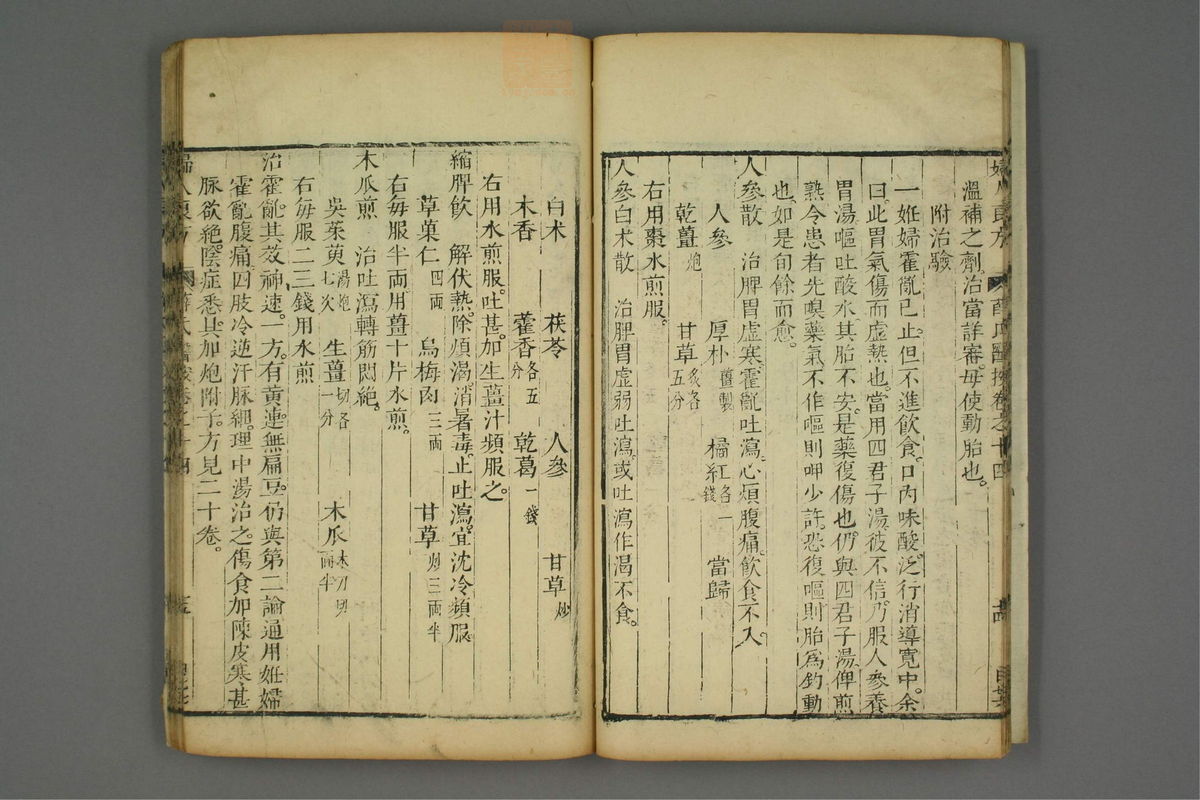 溫補之劑治當詳審毋使動胎也。
附治驗
一妊婦霍亂已止但不進飲食口內味酸泛行消導寬中余
曰此胃氣傷而虛熱也當用四君子湯彼不信乃服人參養
胃湯嘔吐酸水其胎不安是藥復傷也仍與四君子湯俾煎
熟令患者先嗅藥氣不作嘔則呷少許恐復嘔則胎為釣動
也如是旬餘而愈。
人參散 治脾胃虛寒霍亂吐瀉心煩腹痛飲食不入。
人參 厚朴薑製 橘紅各一錢 當歸
乾薑炮 甘草炙各五分
右用棗水煎服。
人參白朮散 治脾胃虛弱吐瀉或吐瀉作渴不食。
白朮 茯苓 人參 甘草炒
木香 藿香各五分 乾葛一錢
右用水煎服。吐甚加生薑汁頻服之。
縮脾飲 解伏熱除煩渴消暑毒止吐瀉宜沈冷頻服
草菓仁四兩 烏梅肉三兩 甘草炒二兩半
右每服半兩用薑十片水煎。
木瓜煎 治吐瀉轉筋悶絕。
吳茱萸湯炮七次 生薑切各一分 木瓜木刀切兩半
右每服二三錢用水煎
治霍亂其效神速。一方有黃連無扁豆仍與第二論通用妊婦
霍亂腹痛四肢冷逆汗脈細理中湯治之傷食加陳皮寒甚
脈欲絕陰症悉具加炮附子方見二十卷。